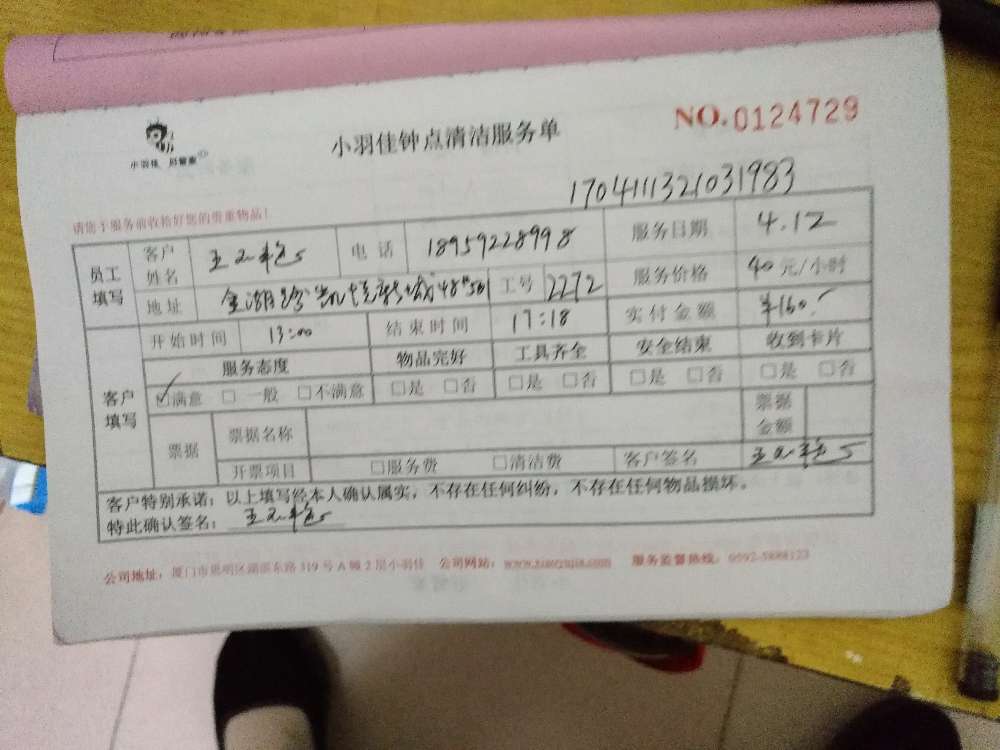 小羽佳 好管家
小羽佳钟点清洁服务单
NO.0124729
1704111321031983
请您于服务前收拾好您的贵重物品!
员工填写 客户姓名 电话 18959228998 服务日期 4.12
地址 金湖路 48# 501 工号 2272 服务价格 40元/小时
客户填写 开始时间 13:00 结束时间 17:18 实付金额 ¥160
服务态度 物品完好 工具齐全 安全结束 收到卡片
☑满意 □一般 □不满意 □是 □否 □是 □否 □是 □否 □是 □否
票据 票据名称 票据金额
开票项目 □服务费 □清洁费 客户签名
客户特别承诺:以上填写经本人确认属实,不存在任何纠纷,不存在任何物品损坏。
特此确认签名:
公司地址:厦门市思明区湖滨东路319号A幢2层小羽佳 公司网站: 服务监督热线:0592-5888123